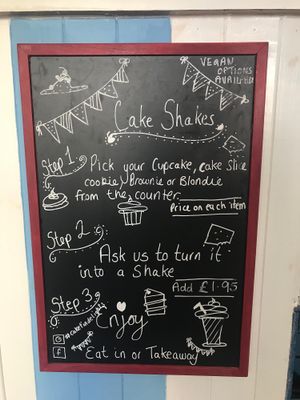 VEGAN
OPTIONS
AVAILABLE
Cake Shakes
Step 1.
Pick your Cupcake, cake slice
cookie, Brownie or Blondie
from the counter.
Price on each item
Step 2
Ask us to turn it
into a Shake
Add £1.95
Step 3
Enjoy
Eat in or Takeaway